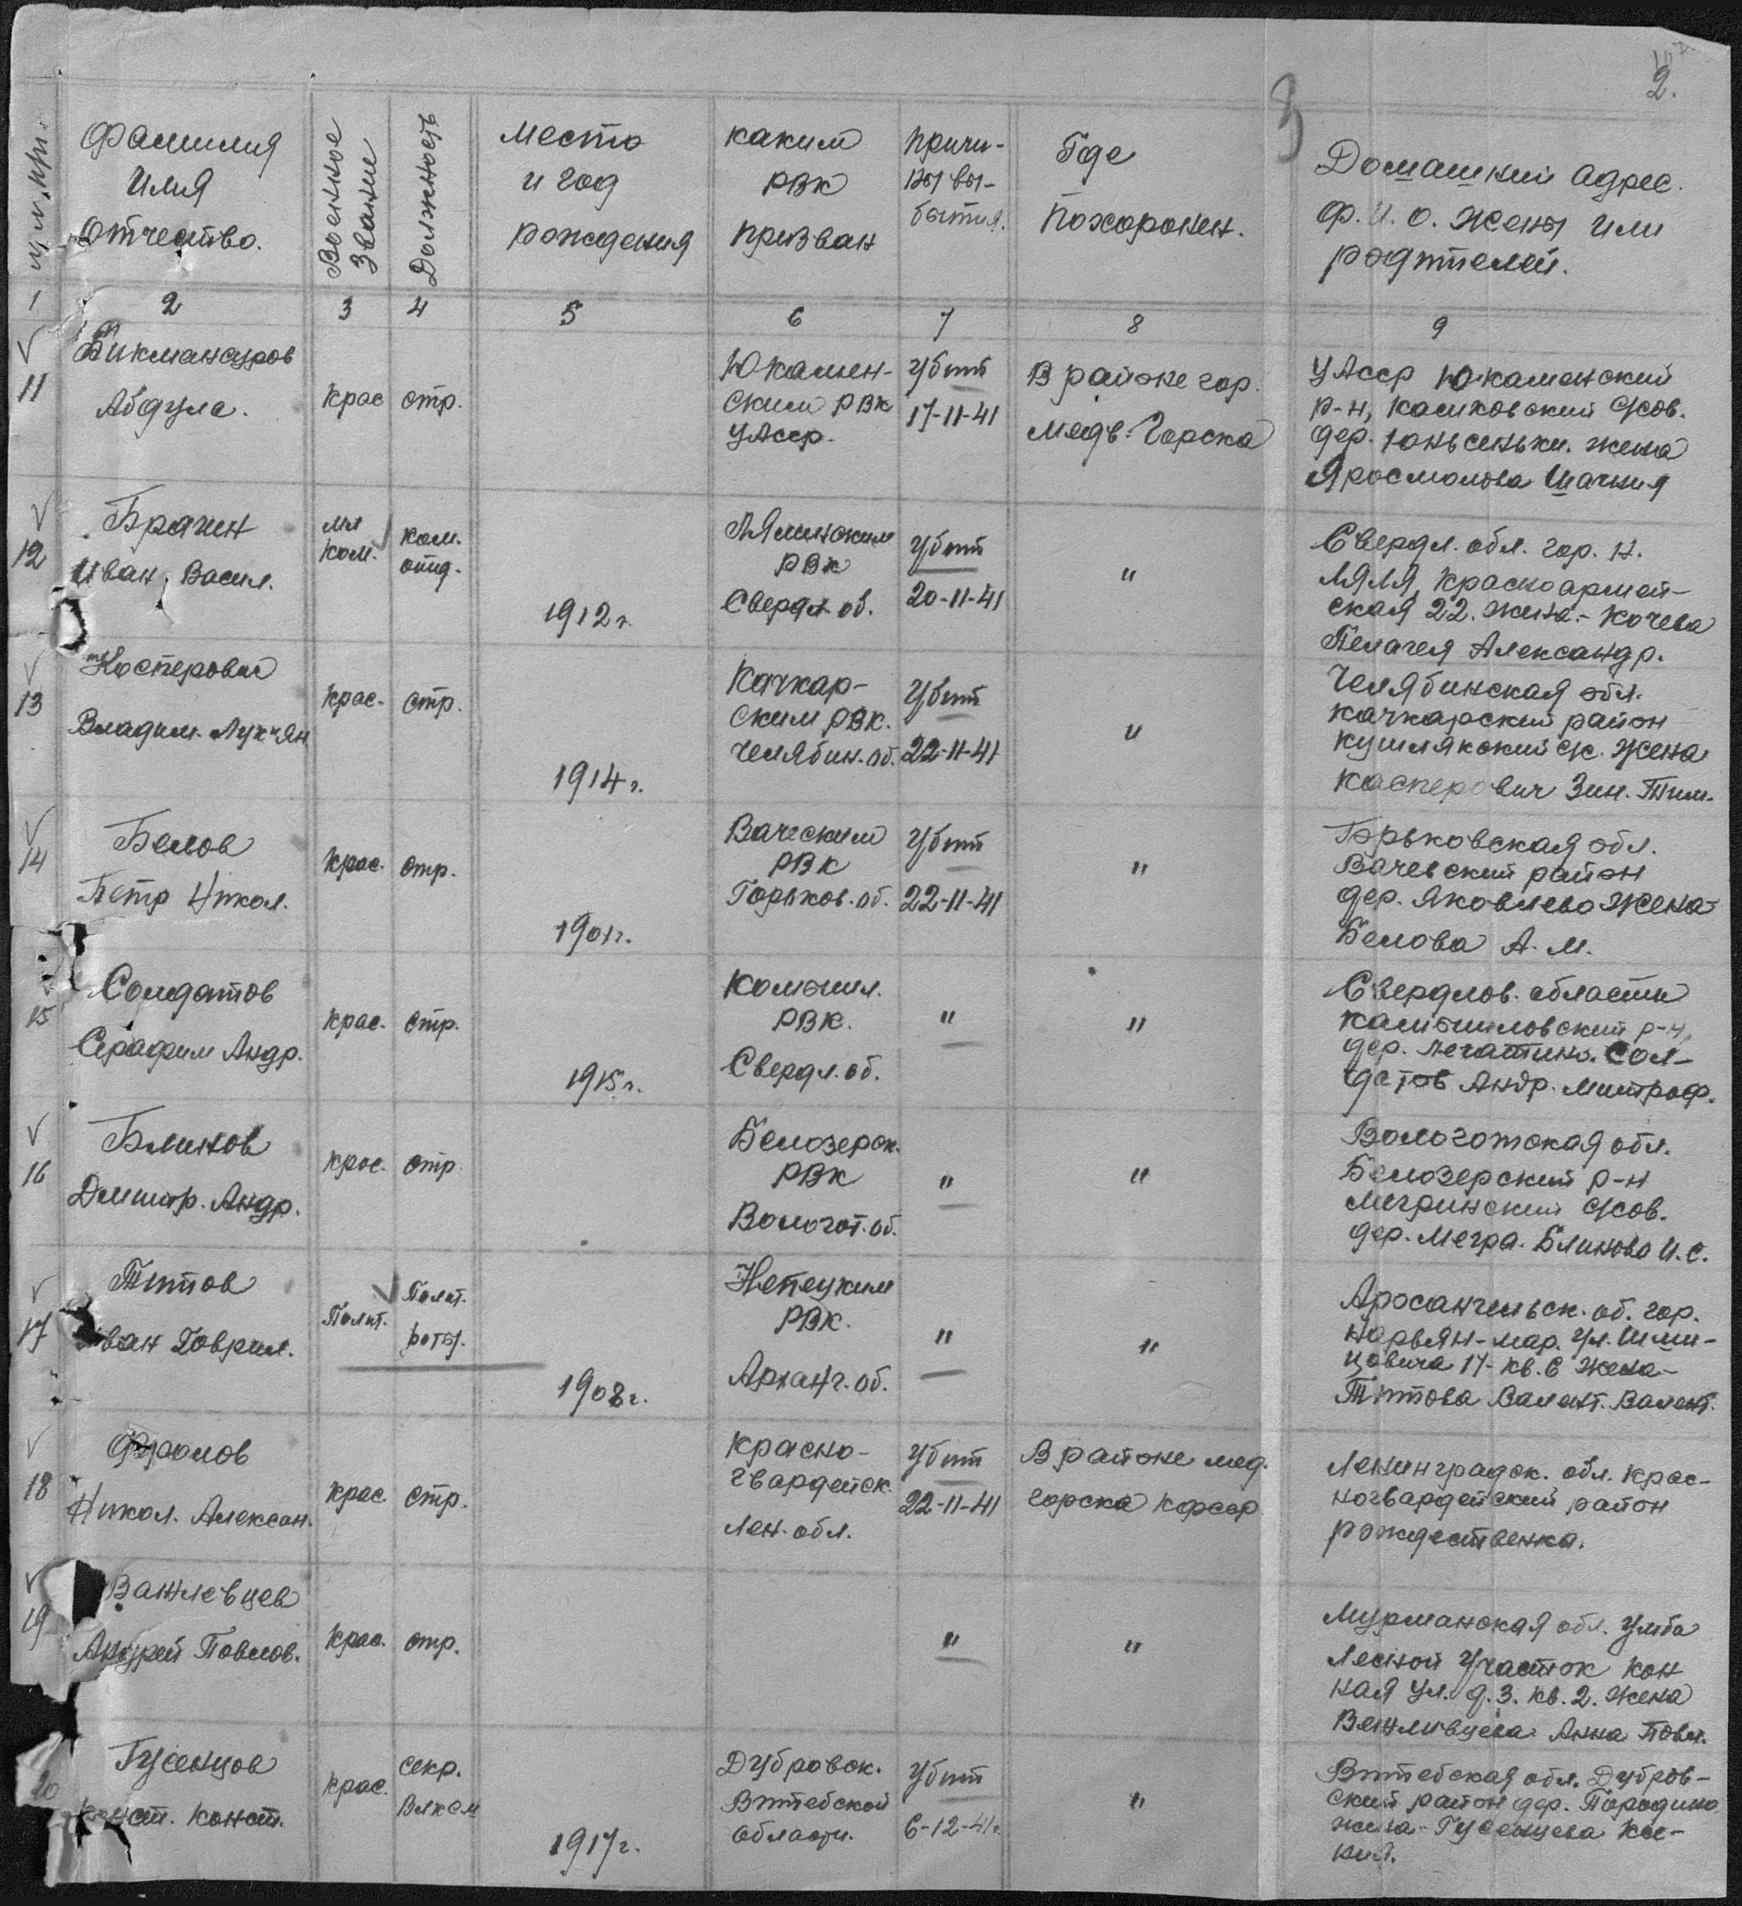 2.
Фамилия
Имя
Отчество.
Военное
Звание
Должность
Место
и год
рождения
каким
РВК
призван
причи-
ны вы-
бытия.
Где
похоронен.
Домашний адрес.
Ф. И. О. жены или
родителей.
1 2 3 4 5 6 7 8 9
11
Бикмансуров
Абдула.
Крас стр.
Юкамен-
ским РВК
УАсср.
Убит
17-11-41
В районе гор.
Медв. Горска
УАсср Юкаменский
р-н, Каликовский с/сов.
дер. Юньсеньки. жена
Яросмолова Шачния
12
Брагин
Иван Васил.
мл
ком.
ком.
отд.
1912 г.
Лялинским
РВК
Свердл. об.
Убит
20-11-41
"
Свердл. обл. гор. Н.
Ляля, Красноармей-
ская 22. жена - Кочева
Пелагея Александр.
13
Костерович
Владим. Лукьян
Крас. стр.
1914 г.
Качкар-
ским РВК.
Челябин. об.
Убит
22-11-41
"
Челябинская обл.
Качкарский район
Кушлякский с/с. Жена
Касперович Зин. Тим.
14
Белов
Петр Никол.
Крас. стр.
1901 г.
Вачским
РВК
Горьков. об.
Убит
22-11-41
"
Горьковская обл.
Вачевский район
дер. Яковлево Жена-
Белова А. М.
15
Солдатов
Серафим Андр.
Крас. стр.
1915 г.
Камышл.
РВК.
Свердл. об.
"
"
Свердлов. области
Камышловский р-н,
дер. Легатино. Сол-
датов Андр. Митроф.
16
Блинов
Дмитр. Андр.
Крас. стр.
Белозерск.
РВК
Вологот. об.
"
"
Вологотская обл.
Белозерский р-н
Мегринский с/сов.
дер. Мегра. Блинова И. С.
17
Титов
Иван Гаврил.
Полит.
Полит.
роты.
1908 г.
Ненецким
РВК.
Арханг. об.
"
"
Аросангельск. об. гор.
Нарьян-мар. Ул. Шми-
довича 17- кв. 6 Жена-
Титова Валент. Валент.
18
Фролов
Никол. Алексан.
Крас. стр.
Красно-
гвардейск.
Лен. обл.
Убит
22-11-41
В районе мед.
горска Кфсср
Ленинградск. обл. Крас-
ногвардейский район
рождественка.
19
Важлевцев
Андрей Павлов.
Крас. стр.
"
"
Мурманская обл. Умба
Лесной Участок Кон
ная ул. д. 3. кв. 2. Жена
Вежливцева Анна Павл.
20
Гусенцов
Конст. Конст.
Крас.
секр.
Влксм
1917 г.
Дубровск.
Витебской
области.
Убит
6-12-41г.
"
Витебская обл. Дубров-
ский район дер. Породино
жена - Гусенцева Ксе-
ния.